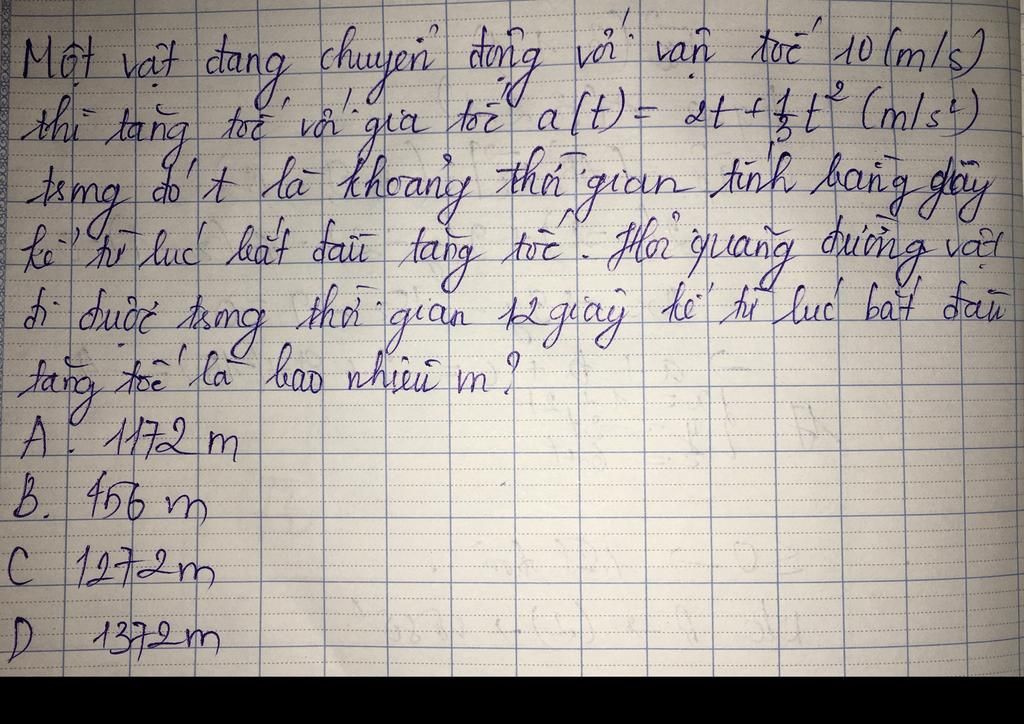 Một vật đang chuyển động với vận tốc 10 (m/s)
thì tăng tốc với gia tốc a(t) = 2t + 1/3 t² (m/s²)
trong đó t là khoảng thời gian tính bằng giây
kể từ lúc bắt đầu tăng tốc. Hỏi quãng đường vật
đi được trong thời gian 12 giây kể từ lúc bắt đầu
tăng tốc là bao nhiêu m?
A. 1172 m
B. 456 m
C 1272 m
D 1372 m